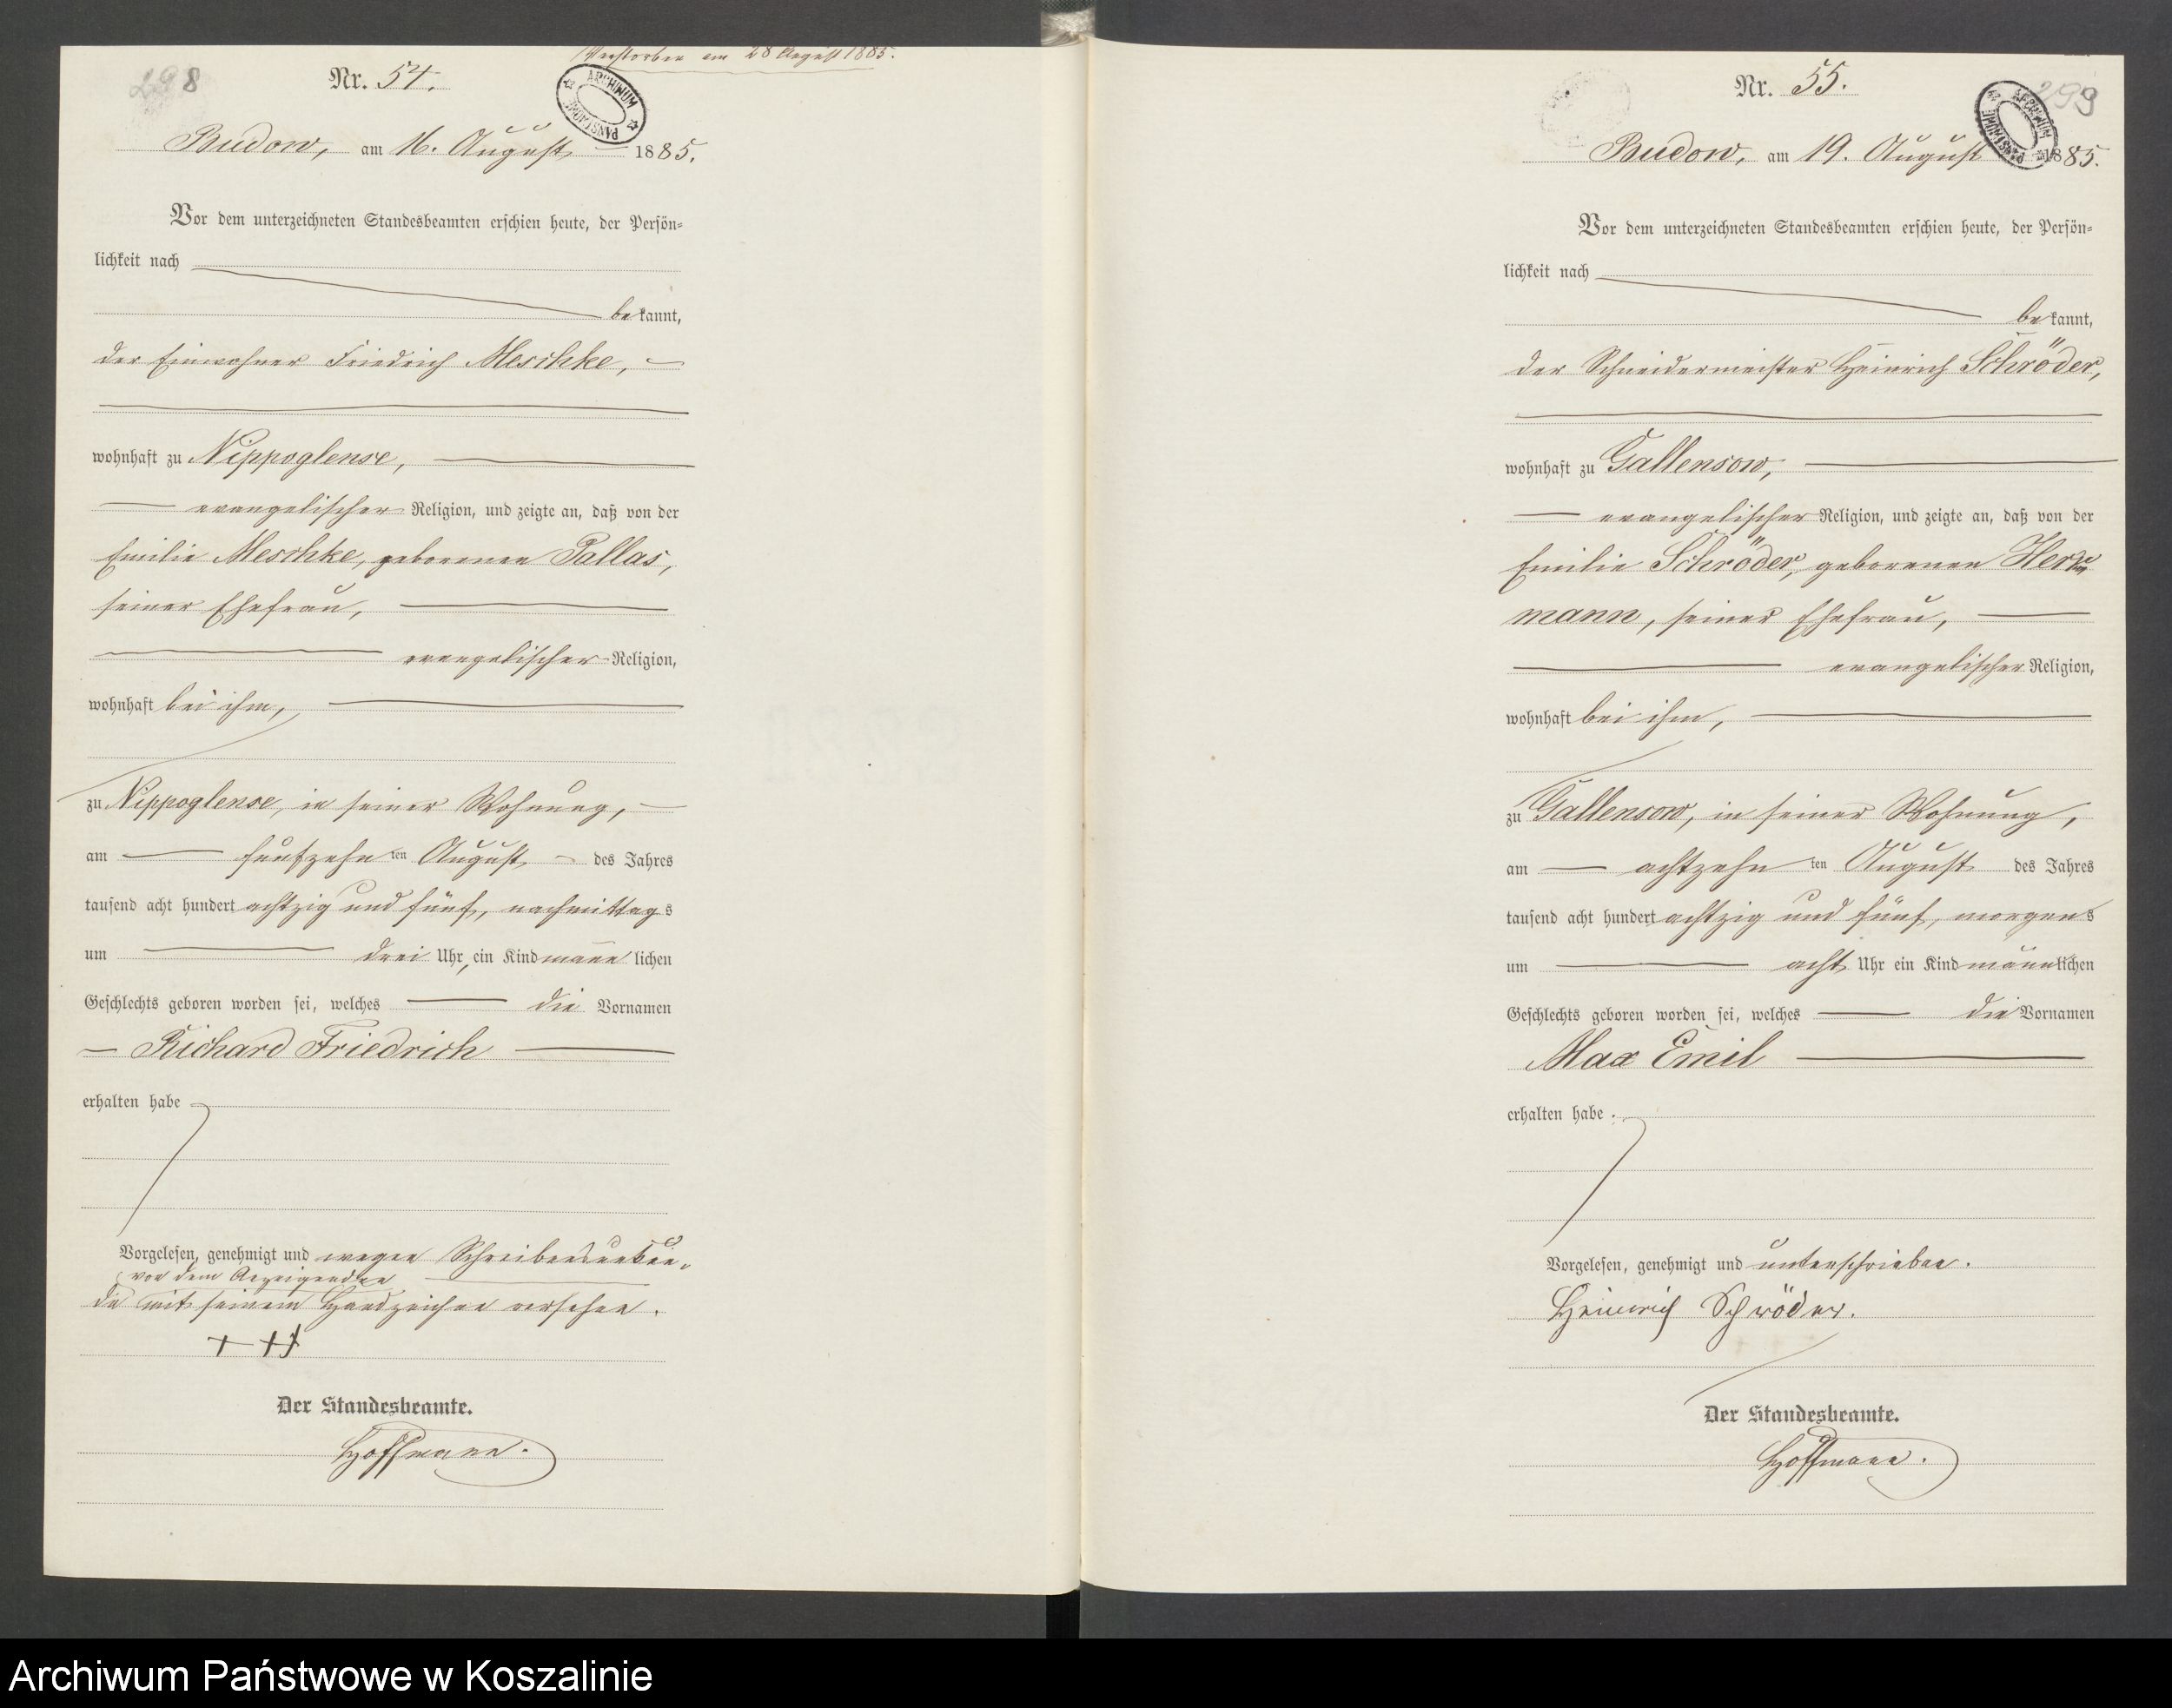 Verstorben am 28 August 1885.
298
Nr. 54.
ARCHIWUM PAŃSTWOWE
Budow, am 16. August 1885.
Vor dem unterzeichneten Standesbeamten erschien heute, der Persön-
lichkeit nach
bekannt,
der Einwohner Friedrich Meschke,
wohnhaft zu Nippoglense,
evangelischer Religion, und zeigte an, daß von der
Emilie Meschke, geborenen Pallas,
seiner Ehefrau,
evangelischer Religion,
wohnhaft bei ihm,
zu Nippoglense, in seiner Wohnung,
am fünfzehn ten August des Jahres
tausend acht hundert achtzig und fünf, nachmittags
um drei Uhr, ein Kind männlichen
Geschlechts geboren worden sei, welches die Vornamen
Richard Friedrich
erhalten habe
Vorgelesen, genehmigt und wegen Schreibensunkun-
von dem Anzeigenden
de mit seinem Handzeichen versehen.
+++
Der Standesbeamte.
Hoffmann.
299
Nr. 55.
ARCHIWUM PAŃSTWOWE
Budow, am 19. August 1885.
Vor dem unterzeichneten Standesbeamten erschien heute, der Persön-
lichkeit nach
bekannt,
der Schneidermeister Heinrich Schröder,
wohnhaft zu Gallensow,
evangelischer Religion, und zeigte an, daß von der
Emilie Schröder, geborenen Herr-
mann, seiner Ehefrau,
evangelischer Religion,
wohnhaft bei ihm,
zu Gallensow, in seiner Wohnung,
am achtzehn ten August des Jahres
tausend acht hundert achtzig und fünf, morgens
um acht Uhr ein Kind männlichen
Geschlechts geboren worden sei, welches die Vornamen
Max Emil
erhalten habe.
Vorgelesen, genehmigt und unterschrieben.
Heinrich Schröder.
Der Standesbeamte.
Hoffmann.
Archiwum Państwowe w Koszalinie